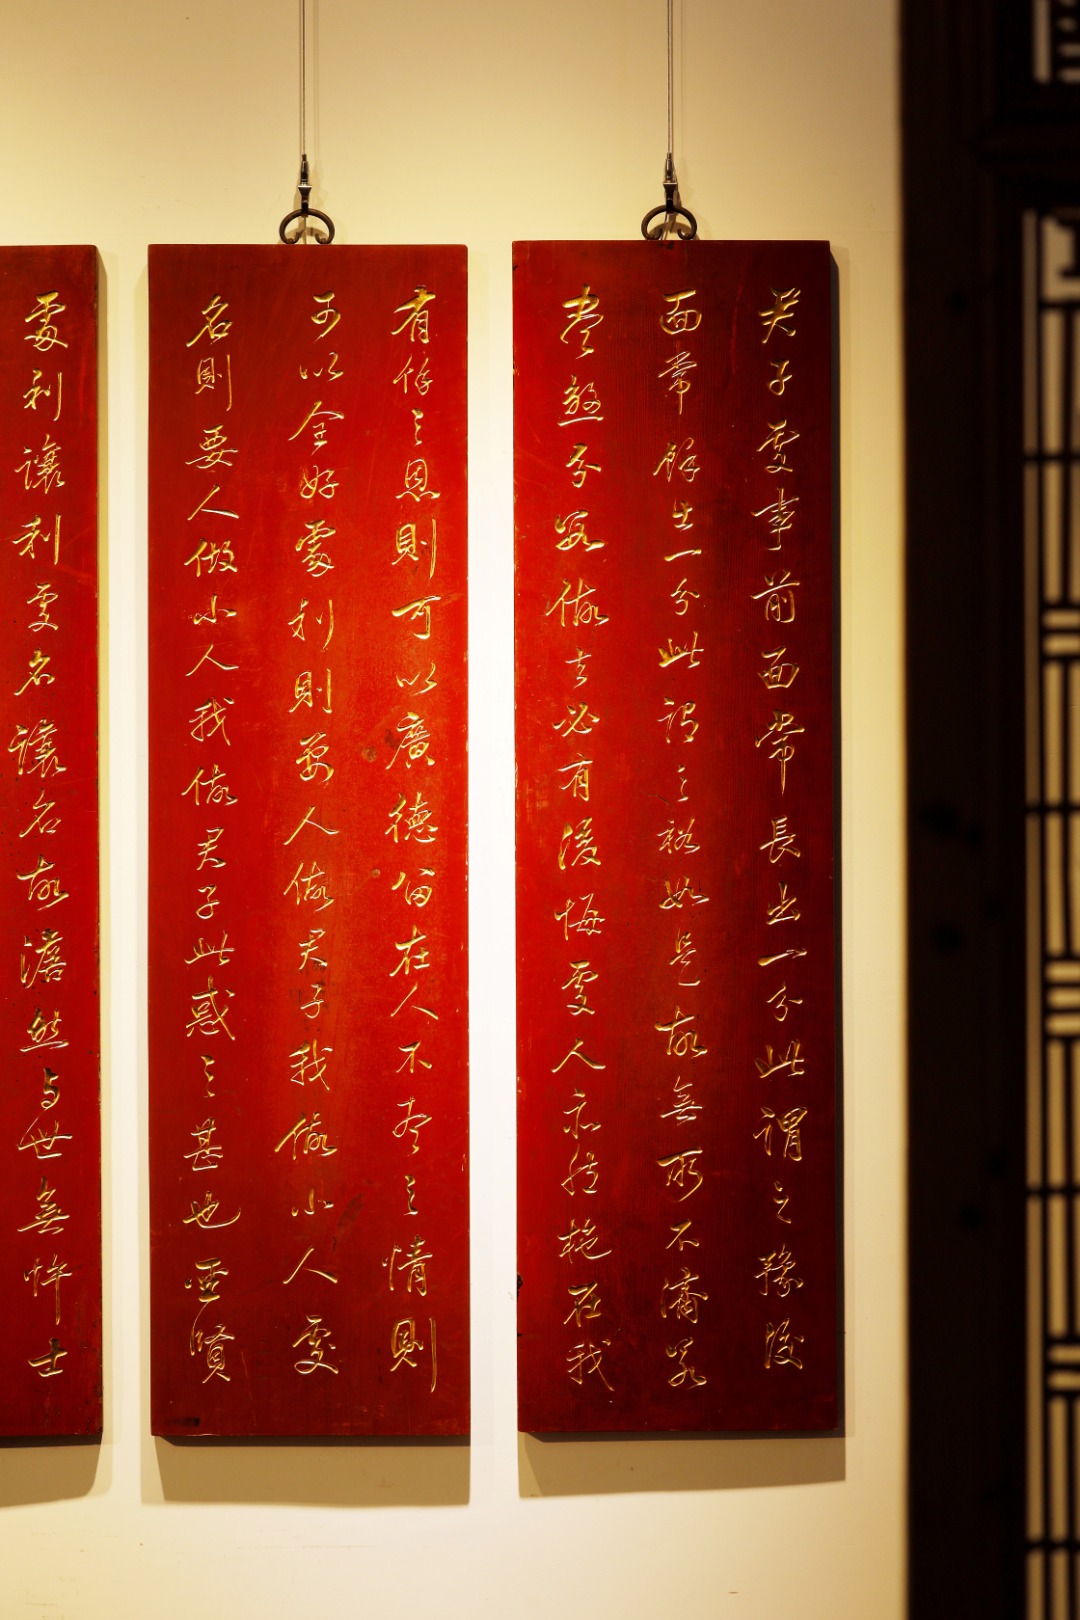 君子處事前面常長出一分此謂之豫後
面常餘出一分此謂之裕如是故無所不濟若
盡煞分數做去必有後悔處人亦然施在我
有餘之恩則可以廣德留在人不盡之情則
可以全好處利則要人做君子我做小人處
名則要人做小人我做君子此惑之甚也聖賢
處利讓利處名讓名故澹然與世無忤士